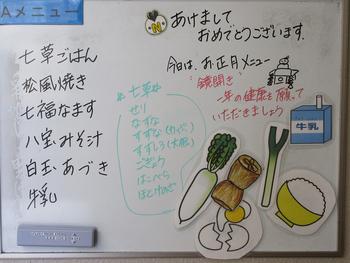 Aメニュー
七草ごはん
松風焼き
七福なます
八宝みそ汁
白玉あづき
牛乳
あけまして
おめでとうございます。
今日は、お正月メニュー
鏡開き
一年の健康を願って
いただきましょう
七草は
せり
なずな
すずな(かぶ)
すずしろ(大根)
ごぎょう
はこべら
ほとけのざ
牛乳
N